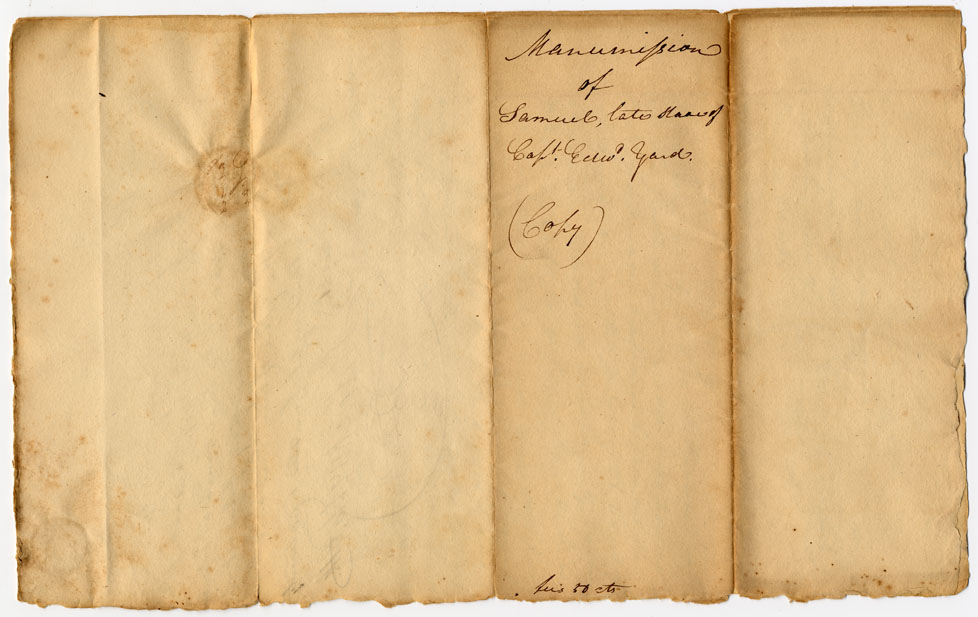 Manumission
of
Samuel, late Slave of
Capt. Edwd. Yard.
(Copy)
50 cts